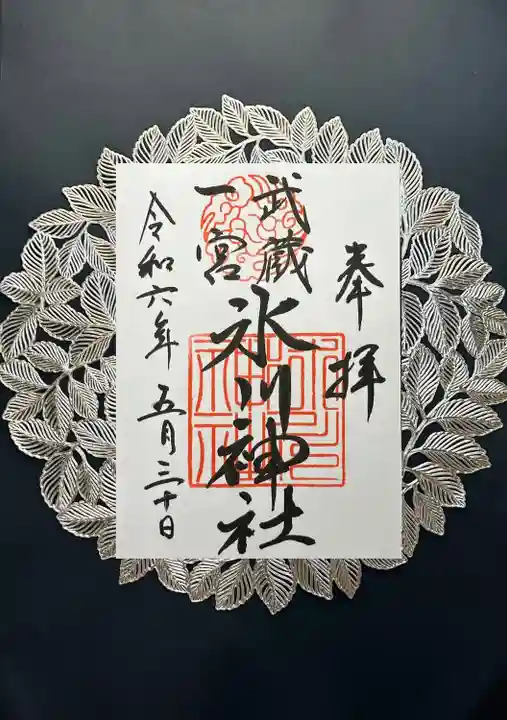 奉拝
武蔵
一宮
氷川神社
令和六年五月三十日